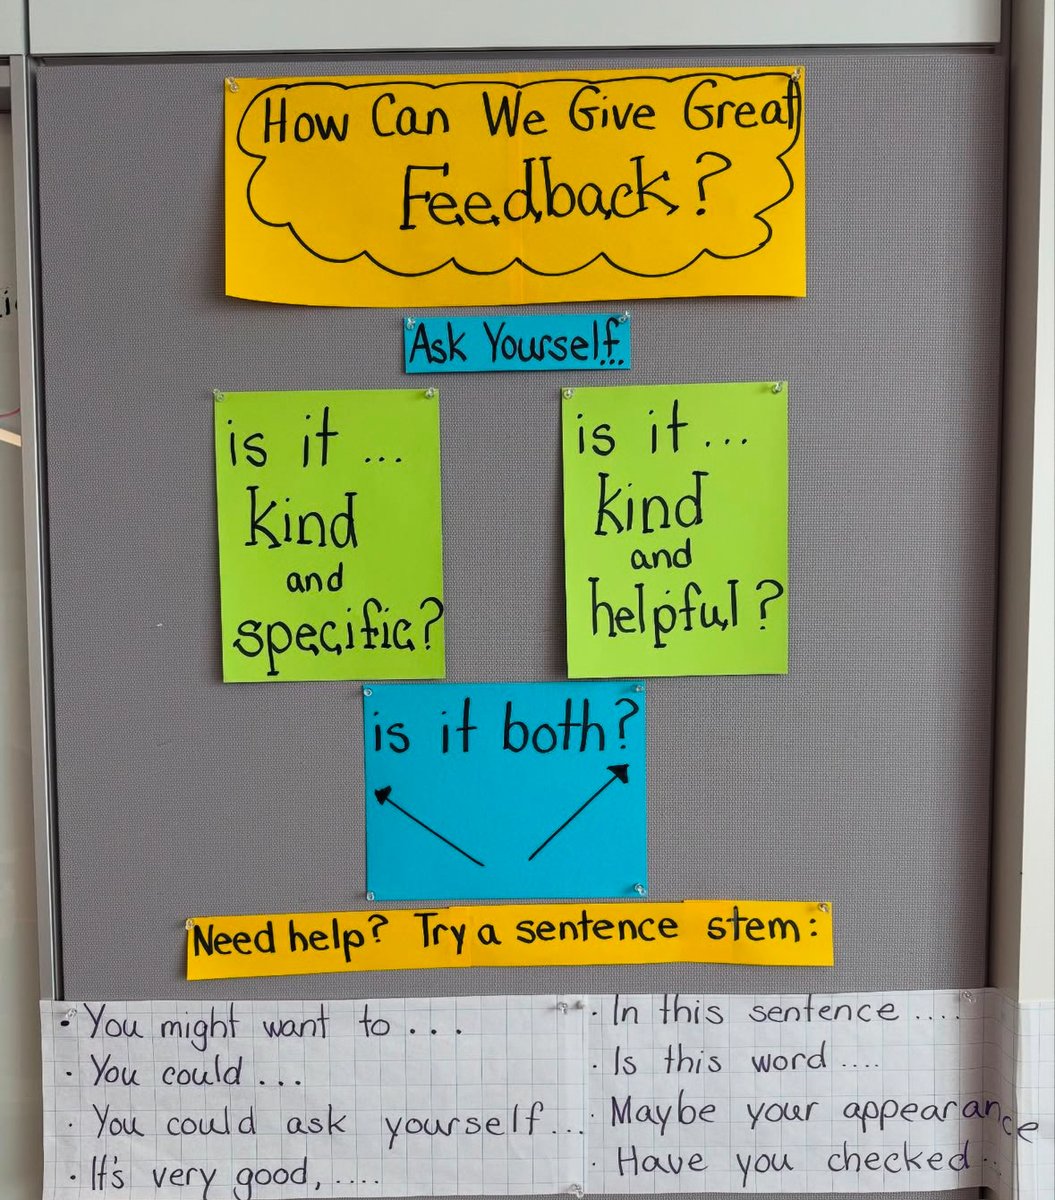 How Can We Give Great
Feedback?
Ask Yourself...
is it ...
kind
and
specific?
is it...
kind
and
helpful?
is it both?
Need help? Try a sentence stem:
· You might want to ...
· You could ...
· You could ask yourself...
· It's very good, ....
· In this sentence ....
· Is this word ....
· Maybe your appearance
· Have you checked..